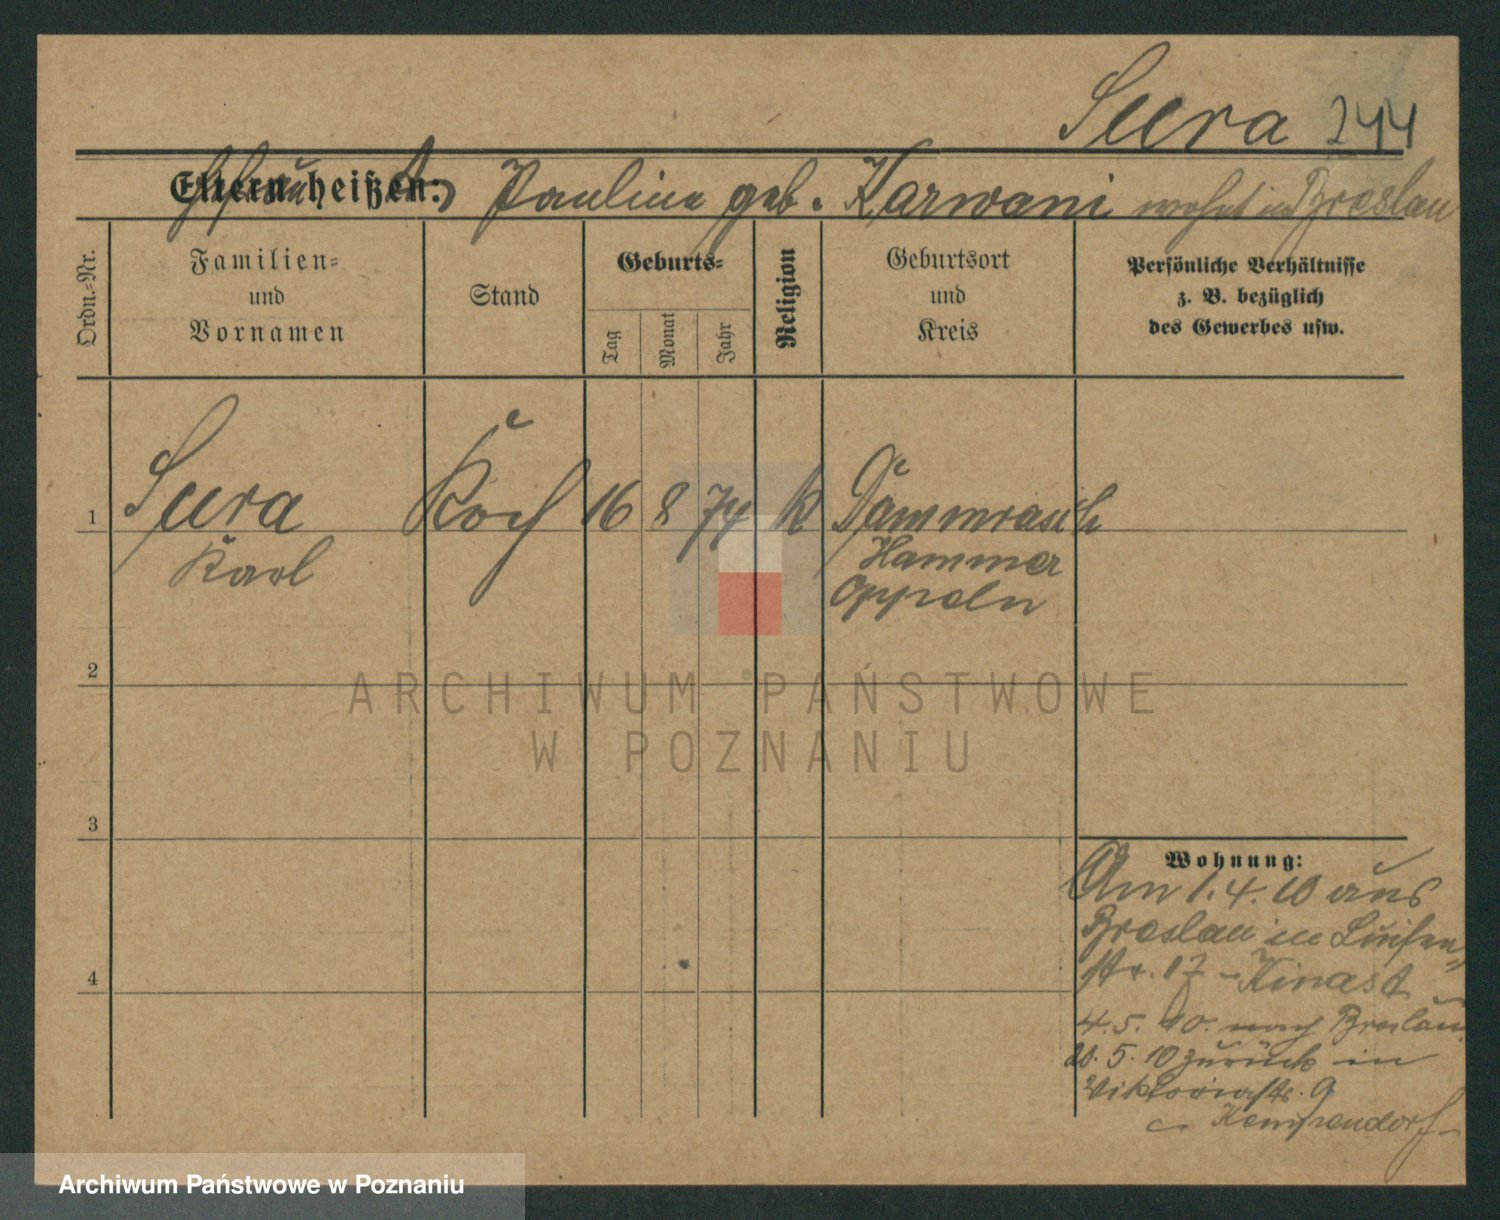 Sura 244
Eltern heißen: Ehefrau Pauline geb. Karwani wohnt in Breslau
Ordn.-Nr.
Familien-
und
Vornamen
Stand
Geburts-
Tag
Monat
Jahr
Religion
Geburtsort
und
Kreis
Persönliche Verhältnisse
z. B. bezüglich
des Gewerbes usw.
1 Sura Koch 16 8 74 k Dammrasch
Karl Hammer
Oppeln
2
ARCHIWUM PAŃSTWOWE
W POZNANIU
3
Wohnung:
Am 1.4.10 aus
Breslau in Luisen-
str. 17 - Kinast
4
4.5.10. nach Breslau
5.10 zurück in
Viktoriastr. 9
Archiwum Państwowe w Poznaniu